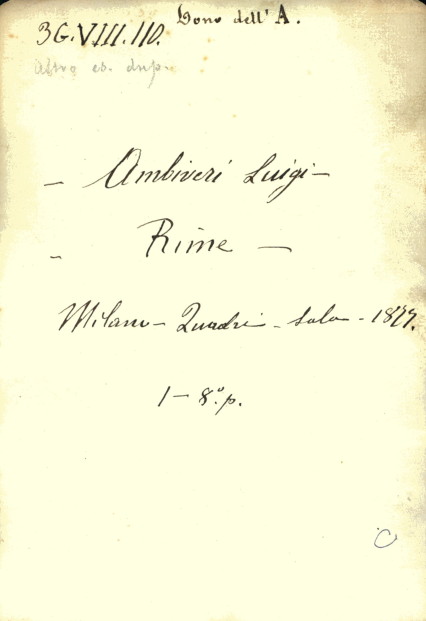 Dono dell' A.
3G.VIII.110.
Altro es. dup.
— Ambiveri Luigi —
— Rime —
Milano — Quadri — 1877.
1 — 8.º p.